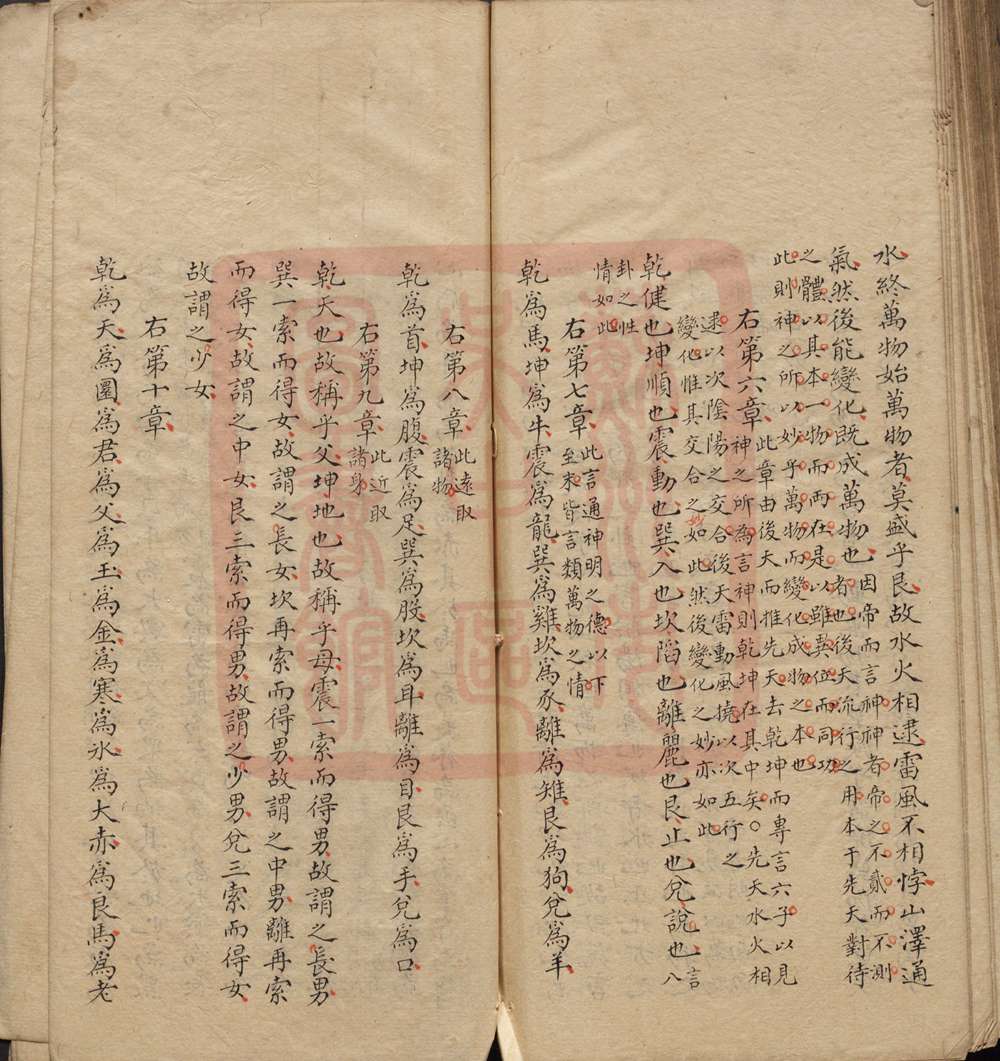 水終萬物始萬物者莫盛乎艮故水火相逮雷風不相悖山澤通
氣然後能變化既成萬物也因帝而言神神者帝之不貳而不測
者也後天流行之用本于先天對待
之體以其本一物而兩在是以雖異位而同功
此則神之所以妙乎萬物而變化成物之本也
右第六章此章由後天而推先天去乾坤而專言六子以見
神之所為言神則乾坤在其中矣○先天水火相
逮以次陰陽之交合後天雷動風撓以次五行之
變化惟其交合之妙如此然後變化之妙亦如此
乾健也坤順也震動也巽入也坎陷也離麗也艮止也兌說也言八
卦之性
情如此
右第七章此言通神明之德以下
至末皆言類萬物之情
乾為馬坤為牛震為龍巽為雞坎為豕離為雉艮為狗兌為羊
右第八章此遠取
諸物
乾為首坤為腹震為足巽為股坎為耳離為目艮為手兌為口
右第九章此近取
諸身
乾天也故稱乎父坤地也故稱乎母震一索而得男故謂之長男
巽一索而得女故謂之長女坎再索而得男故謂之中男離再索
而得女故謂之中女艮三索而得男故謂之少男兌三索而得女
故謂之少女
右第十章
乾為天為圜為君為父為玉為金為寒為冰為大赤為良馬為老